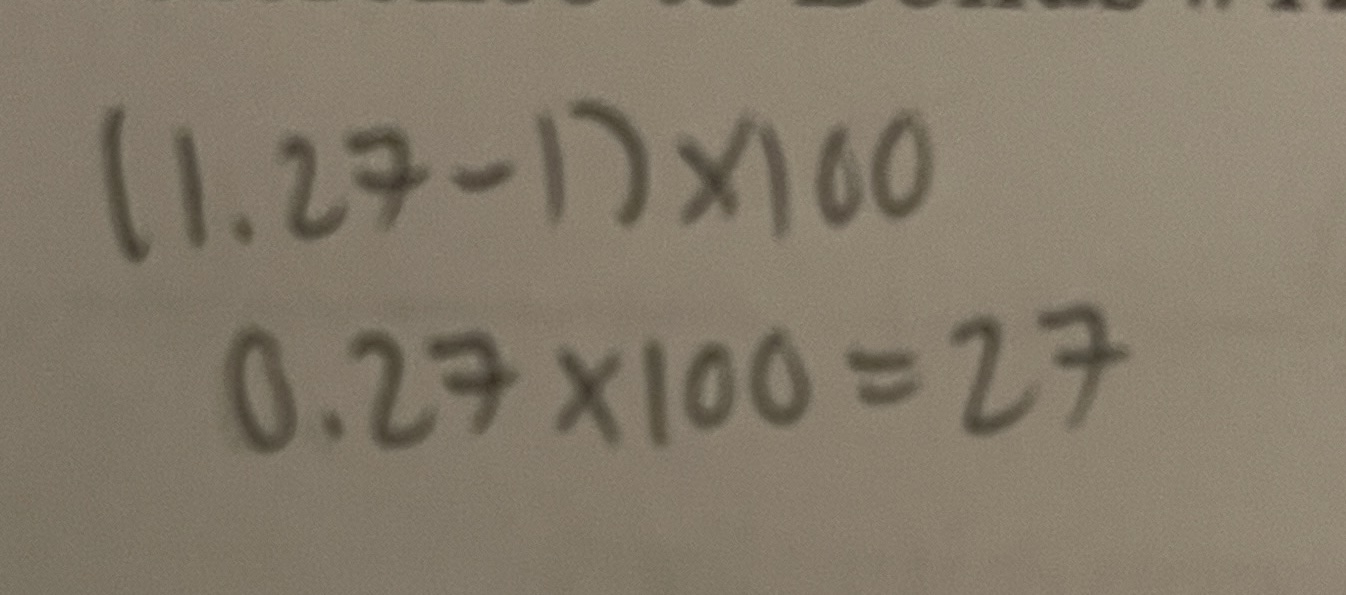 (1.27-1)×100
0.27×100=27